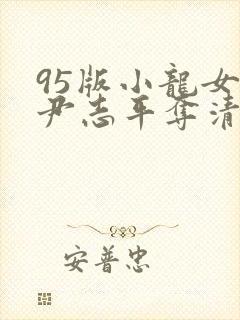 95版小龍女
尹志平奪清
安普忠